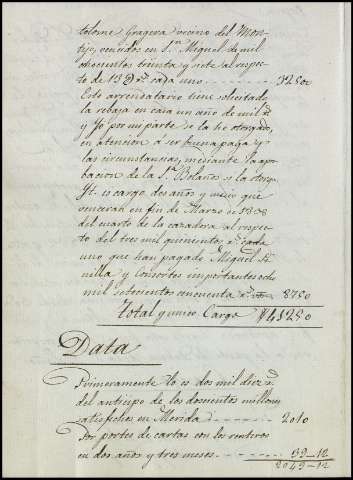 tolomé Gragera vecino del Mon-
tijo, vencidos en Sn Miguel de mil
ochocientos treinta y siete al respec-
to de 13 rs cada uno 3250
Este arrendatario tiene solicitada
la rebaja en cada un año de mil rs
y Yo por mi parte se la hé otorgado,
en atencion a ser buena paga y
las circunstancias, mediante la apro-
bacion de la Sra Bolaños se la otorgo
Yt. es cargo dos años y medio que
venceran en fin de Marzo de 1838
del cuarto de la cazadora al respec-
to del tres mil quinientos rs cada
uno que han pagado Miguel
nilla y Consortes importantes ocho
mil setecientos cincuenta rs 8750
Total q unico Cargo 41250
Data
Primeramente lo es dos mil diez rs
del anticipo de los doscientos millones
satisfechos en Merida 2010
Por portes de cartas con los renteros
en dos años y tres meses 39-12
2049-12